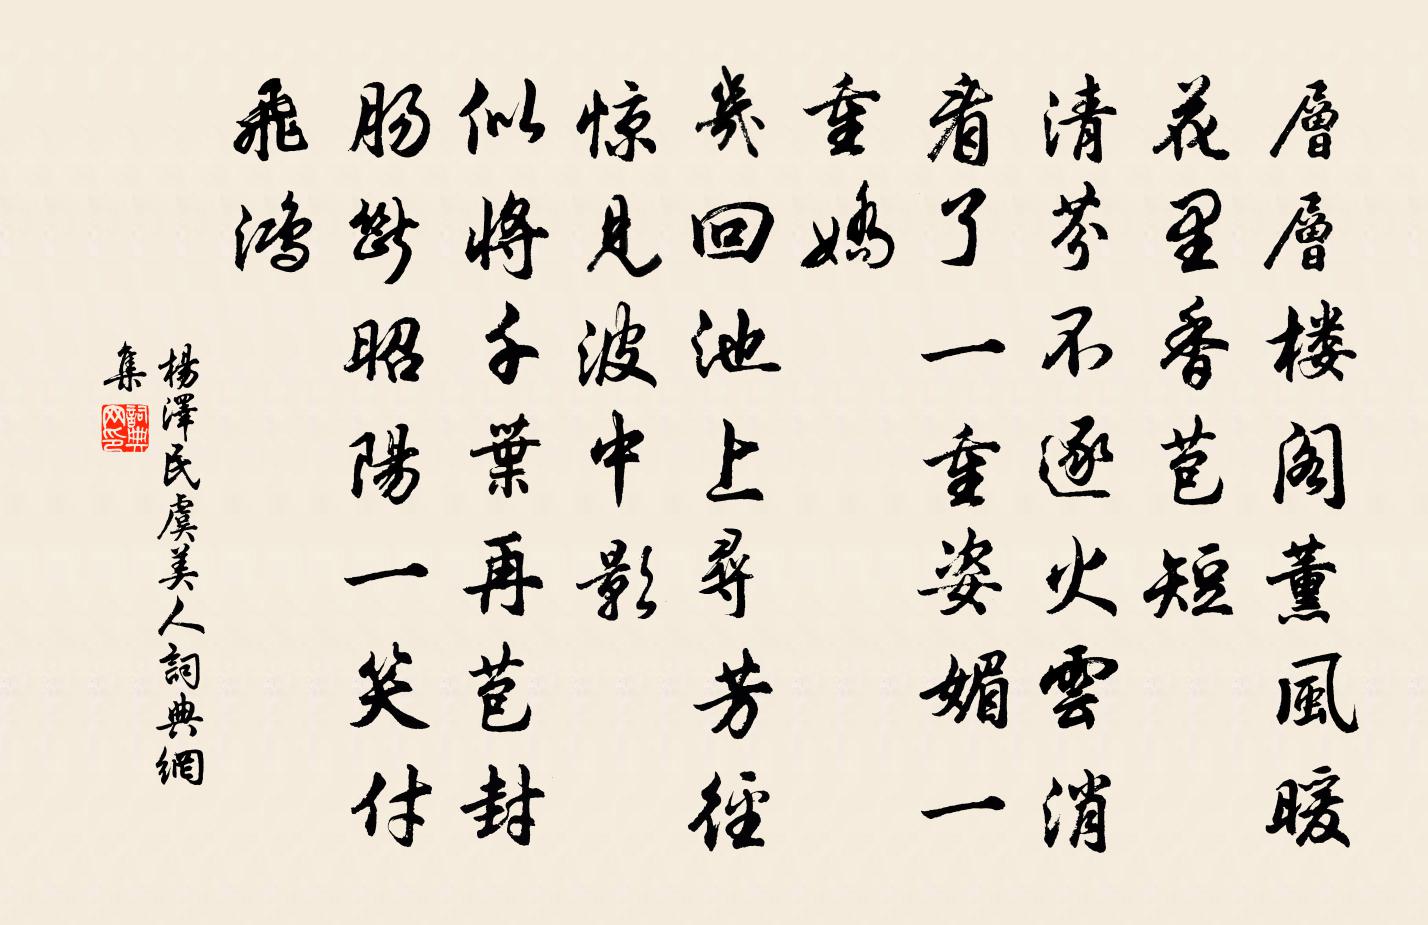 層層楼阁薰風暖
花里香苞短
清芬不逐火雲消
看了一重姿媚一
重嬌
幾回池上尋芳徑
惊見波中影
似將千葉再苞封
肠斷昭陽一笑付
飛鴻
楊澤民虞美人詞典網
集
詞典网印